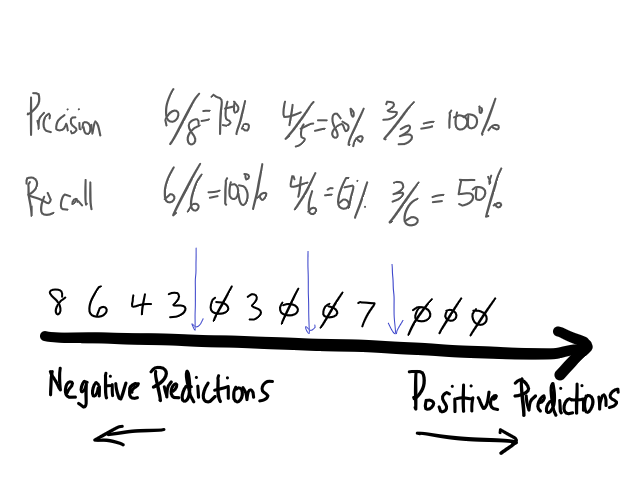 Precision 6/8=75% 4/5=80% 3/3=100%
Recall 6/6=100% 4/6=67% 3/6=50%
8 6 4 3 0 3 0 0 7 0 0 0
Negative Predictions Positive Predictions